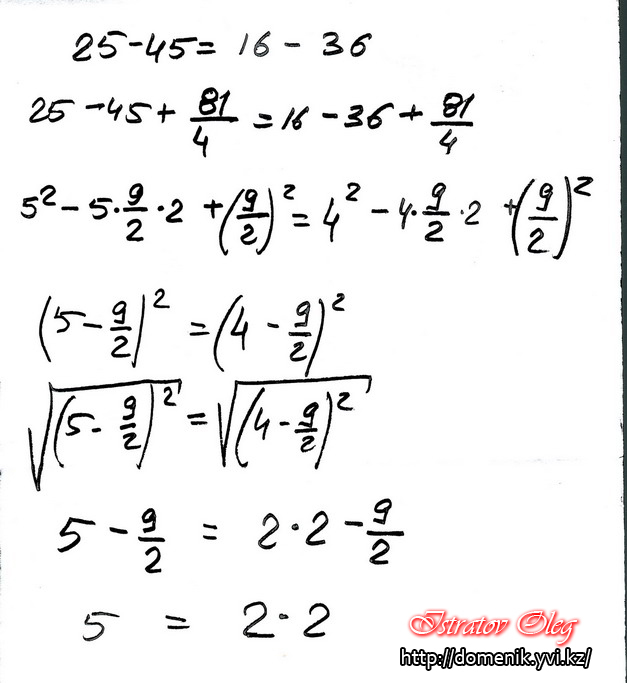 25-45= 16 - 36
25 -45 + 81/4 = 16 - 36 + 81/4
5² - 5·9/2·2 + (9/2)² = 4² - 4·9/2·2 + (9/2)²
(5 - 9/2)² = (4 - 9/2)²
√(5 - 9/2)² = √(4 - 9/2)²
5 - 9/2 = 2·2 - 9/2
5 = 2·2
Istratov Oleg
http://domenik.yvi.kz/